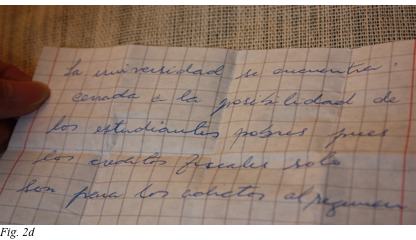 La universidad se encuentra
cerrada a la posibilidad de
los estudiantes pobres pues
los creditos fiscales solo
son para los adictos al regimen
Fig. 2d